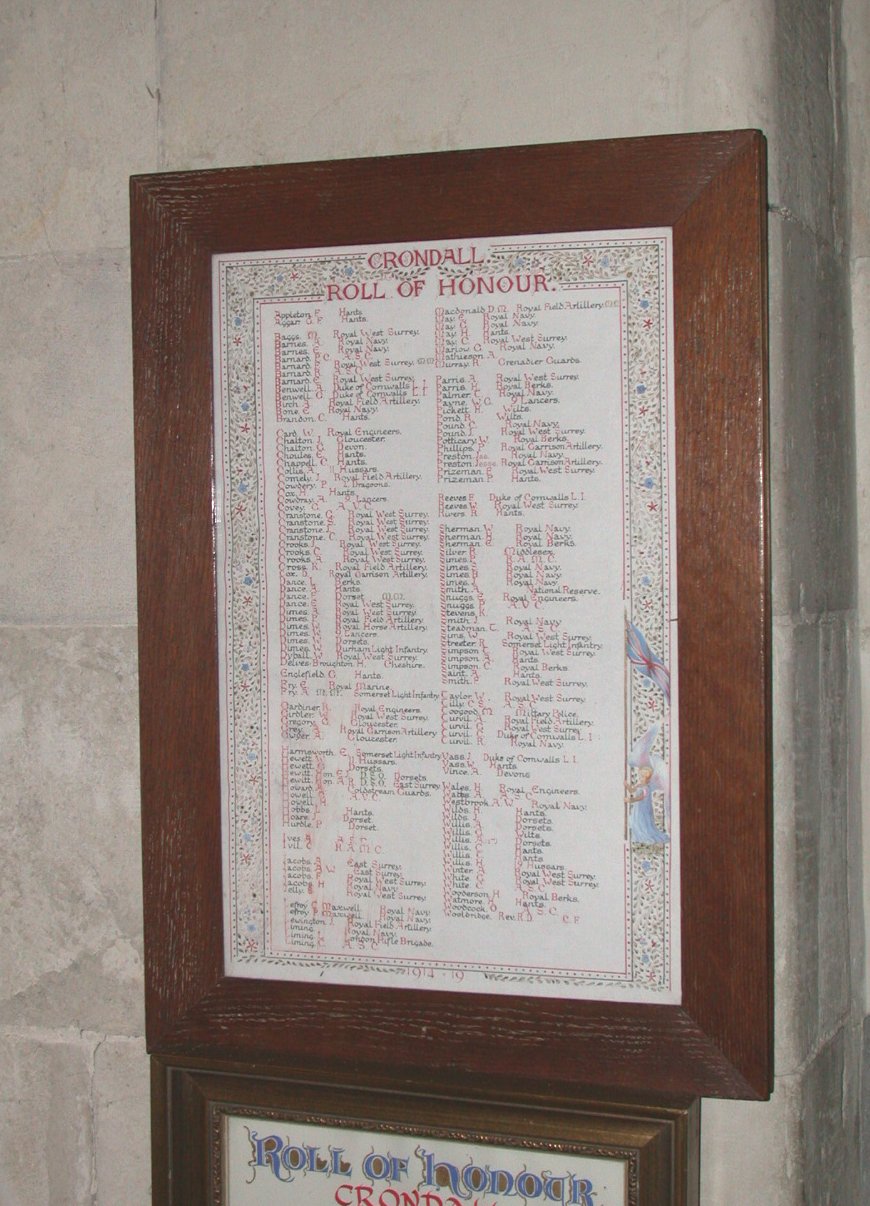 CRONDALL
ROLL OF HONOUR.
Appleton, F. Hants.
Aggar G. F. Hants.
Baggs. M. Royal West Surrey.
Barnes. Royal Navy.
Barnes. Royal Navy.
Barnard. A.S.C.
Barnard. Royal West Surrey. M.M.
Barnard. A.S.C.
Barnard. E. Royal West Surrey.
Benwell. A. Duke of Cornwalls L.I.
Benwell. G. Duke of Cornwalls L.I.
Birch. J. Royal Field Artillery.
Bone. E. Royal Navy.
Brandon. C. Hants.
Card. W. Royal Engineers.
Chalton. J. Gloucester.
Chalton. G. Devon.
Choules. E. Hants.
Chappell. C. Hants.
Collis. A. 11 Hussars.
Comely. J. Royal Field Artillery.
Cowdery. P. 2. Dragoons.
Cox. H. Hants.
Cowdray. A. 9 Lancers.
Covey. G. A.V.C.
Cranstone. G. Royal West Surrey.
Cranstone. S. Royal West Surrey.
Cranstone. L. Royal West Surrey.
Cranstone. C. Royal West Surrey.
Crooks. J. Royal West Surrey.
Crooks. C. Royal West Surrey.
Crooks. A. Royal West Surrey.
Cross. R. Royal Field Artillery.
Cox. D. Royal Garrison Artillery.
Dance. L. Berks.
Dance. Hants.
Dance. E. Dorset. M.M.
Dance. Royal West Surrey.
Dimes. A. Royal West Surrey.
Dimes. Royal Field Artillery.
Dimes. Royal Horse Artillery.
Dimes. 9 Lancers.
Dimes. W. Dorsets.
Dimes. W. Durham Light Infantry.
Dyball. W. Royal West Surrey.
Delves-Broughton. H. Cheshire.
Englefield. G. Hants.
Fry. E. Royal Marine.
Fry. A. M.M. Somerset Light Infantry.
Gardiner. R. Royal Engineers.
Girdler. W. Royal West Surrey.
Gregory. G. Gloucester.
Grey. Royal Garrison Artillery
Gloucester.
Harmsworth. E. Somerset Light Infantry
Hewett. W. 11 Hussars.
Hewett. Dorsets.
Hewitt. Hon. E. D.S.O. Dorsets.
Hewitt. Hon. A. R. D.S.O. East Surrey.
Howard. Coldstream Guards.
Howell. G. A.V.C.
Howell. A.
Hobbs. L. Hants.
Hoare. J. Dorset.
Hurdle. P. Dorset.
Ives. A. A.S.C.
Ivil. C. R.A.M.C.
Jacobs. A. East Surrey.
Jacobs. A. W. East Surrey.
Jacobs. F. Royal West Surrey.
Jacobs. H. Royal Navy.
Jelly. Royal West Surrey.
Lefroy C. Maxwell. Royal Navy.
Lefroy P. Maxwell. Royal Navy.
Lewington. Royal Field Artillery.
Liming. Royal Navy.
Liming. London Rifle Brigade.
Liming. C. A.S.C.
Macdonald D. M. Royal Field Artillery. M.C.
May. E. Royal Navy.
May. G. Royal Navy.
May. H. Hants.
May. C. Royal West Surrey.
Marlow. G. Royal Navy.
Mathieson. A.
Murray. R. Grenadier Guards.
Parris. A. Royal West Surrey.
Parris. H. Royal Berks.
Palmer. E. Royal Navy.
Payne. W. G. 9 Lancers.
Pickett. H. Wilts.
Pond. R. Wilts.
Pound. C. Royal Navy.
Pound. J. Royal West Surrey.
Potticary. W. Royal Berks.
Phillips. P. Royal Garrison Artillery.
Preston. Jas. Royal Navy.
Preston. Jesse. Royal Garrison Artillery.
Prizeman. E. Royal West Surrey.
Prizeman. P. Hants.
Reeves. F. Duke of Cornwalls L.I.
Reeves. W. Royal West Surrey.
Rivers. A. Hants.
Sherman. W. Royal Navy.
Sherman. H. Royal Navy.
Sherman. E. Royal Berks.
Silver. R. Middlesex.
Simes. P. R.A.M.C.
Simes. F. Royal Navy.
Simes. H. Royal Navy.
Simes. J. Royal Navy.
Smith. A. National Reserve.
Snuggs. S. Royal Engineers.
Snuggs. P. A.V.C.
Stevens. K.
Smith. J. Royal Navy.
Steadman. T. A.S.C.
Sims. W. Royal West Surrey.
Streeter. R. Somerset Light Infantry.
Simpson. G. Royal West Surrey.
Simpson. A. Hants.
Simpson. C. Royal Berks.
Saint. A. Hants.
Smith. P. Royal West Surrey.
Taylor. W. Royal West Surrey.
Tilly. C. S. A.S.C.
Toogood. M. Military Police.
Turvil. A. Royal Field Artillery.
Turvil. G. Royal West Surrey.
Turvil. C. Duke of Cornwalls L.I.
Turvil. R. Royal Navy.
Vass. J. Duke of Cornwalls L.I.
Vass. W. Hants.
Vince. A. Devons.
Wales. H. Royal Engineers.
Watts. A. A.S.C.
Westbrook. A. W. Royal Navy.
Wilds. H. Hants.
Wilds. A. Dorsets.
Willis. A. Dorsets.
Willis. G. Wilts.
Willis. A. Dorsets.
Willis. C. Hants.
Willis. L. Hants.
Willis. H. 11 Hussars.
Winter. A. Royal West Surrey.
White. G. Royal West Surrey.
White. C. A.S.C.
Woyderson. H. Royal Berks.
Watmore. H. Hants.
Woodcock. O. A.S.C.
Wooldridge. Rev. R. D. C.F.
1914 - 19
ROLL OF HONOUR
CRONDALL